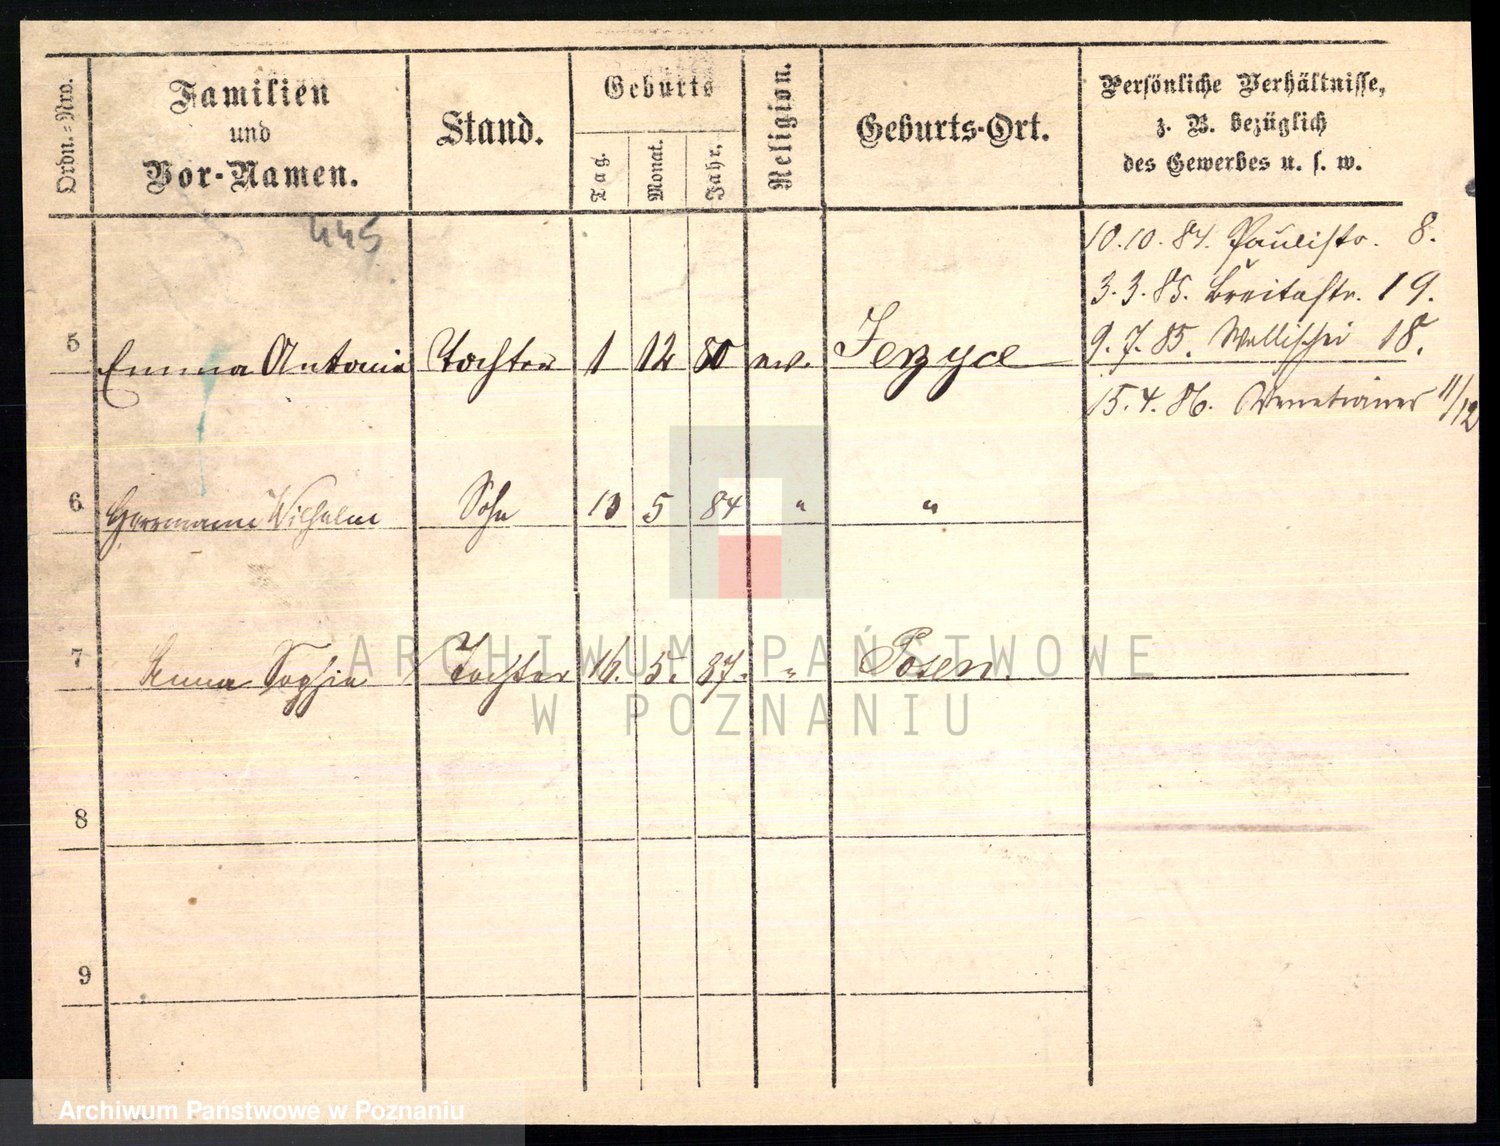 Ordn.-Nro.
Familien
und
Vor-Namen.
Stand.
Geburts
Tag.
Monat.
Jahr.
Religion.
Geburts-Ort.
Persönliche Verhältnisse,
z. B. bezüglich
des Gewerbes u. s. w.
445
10.10.84. Paulistr. 8.
3.3.85. Breitestr. 19.
9.7.85. Wallischei 18.
15.4.86. Venetianer 11/12
5 Emma Antonie Tochter 1 12 80 ev. Jerzyce
6 Herrmann Wilhelm Sohn 10 5 84 " "
7 Anna Sophie Tochter 16. 5. 87. " Posen.
8
9
ARCHIWUM PAŃSTWOWE
W POZNANIU
Archiwum Państwowe w Poznaniu